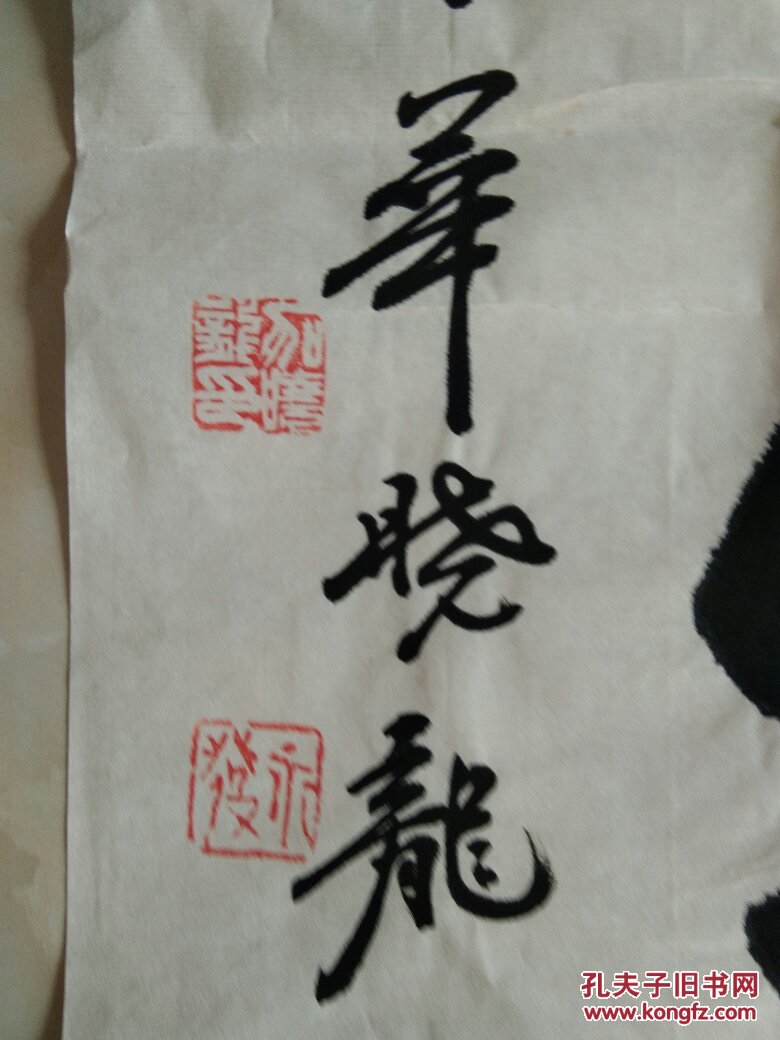 華晓龍
加曉龍印
永發
孔夫子旧书网
www.kongfz.com